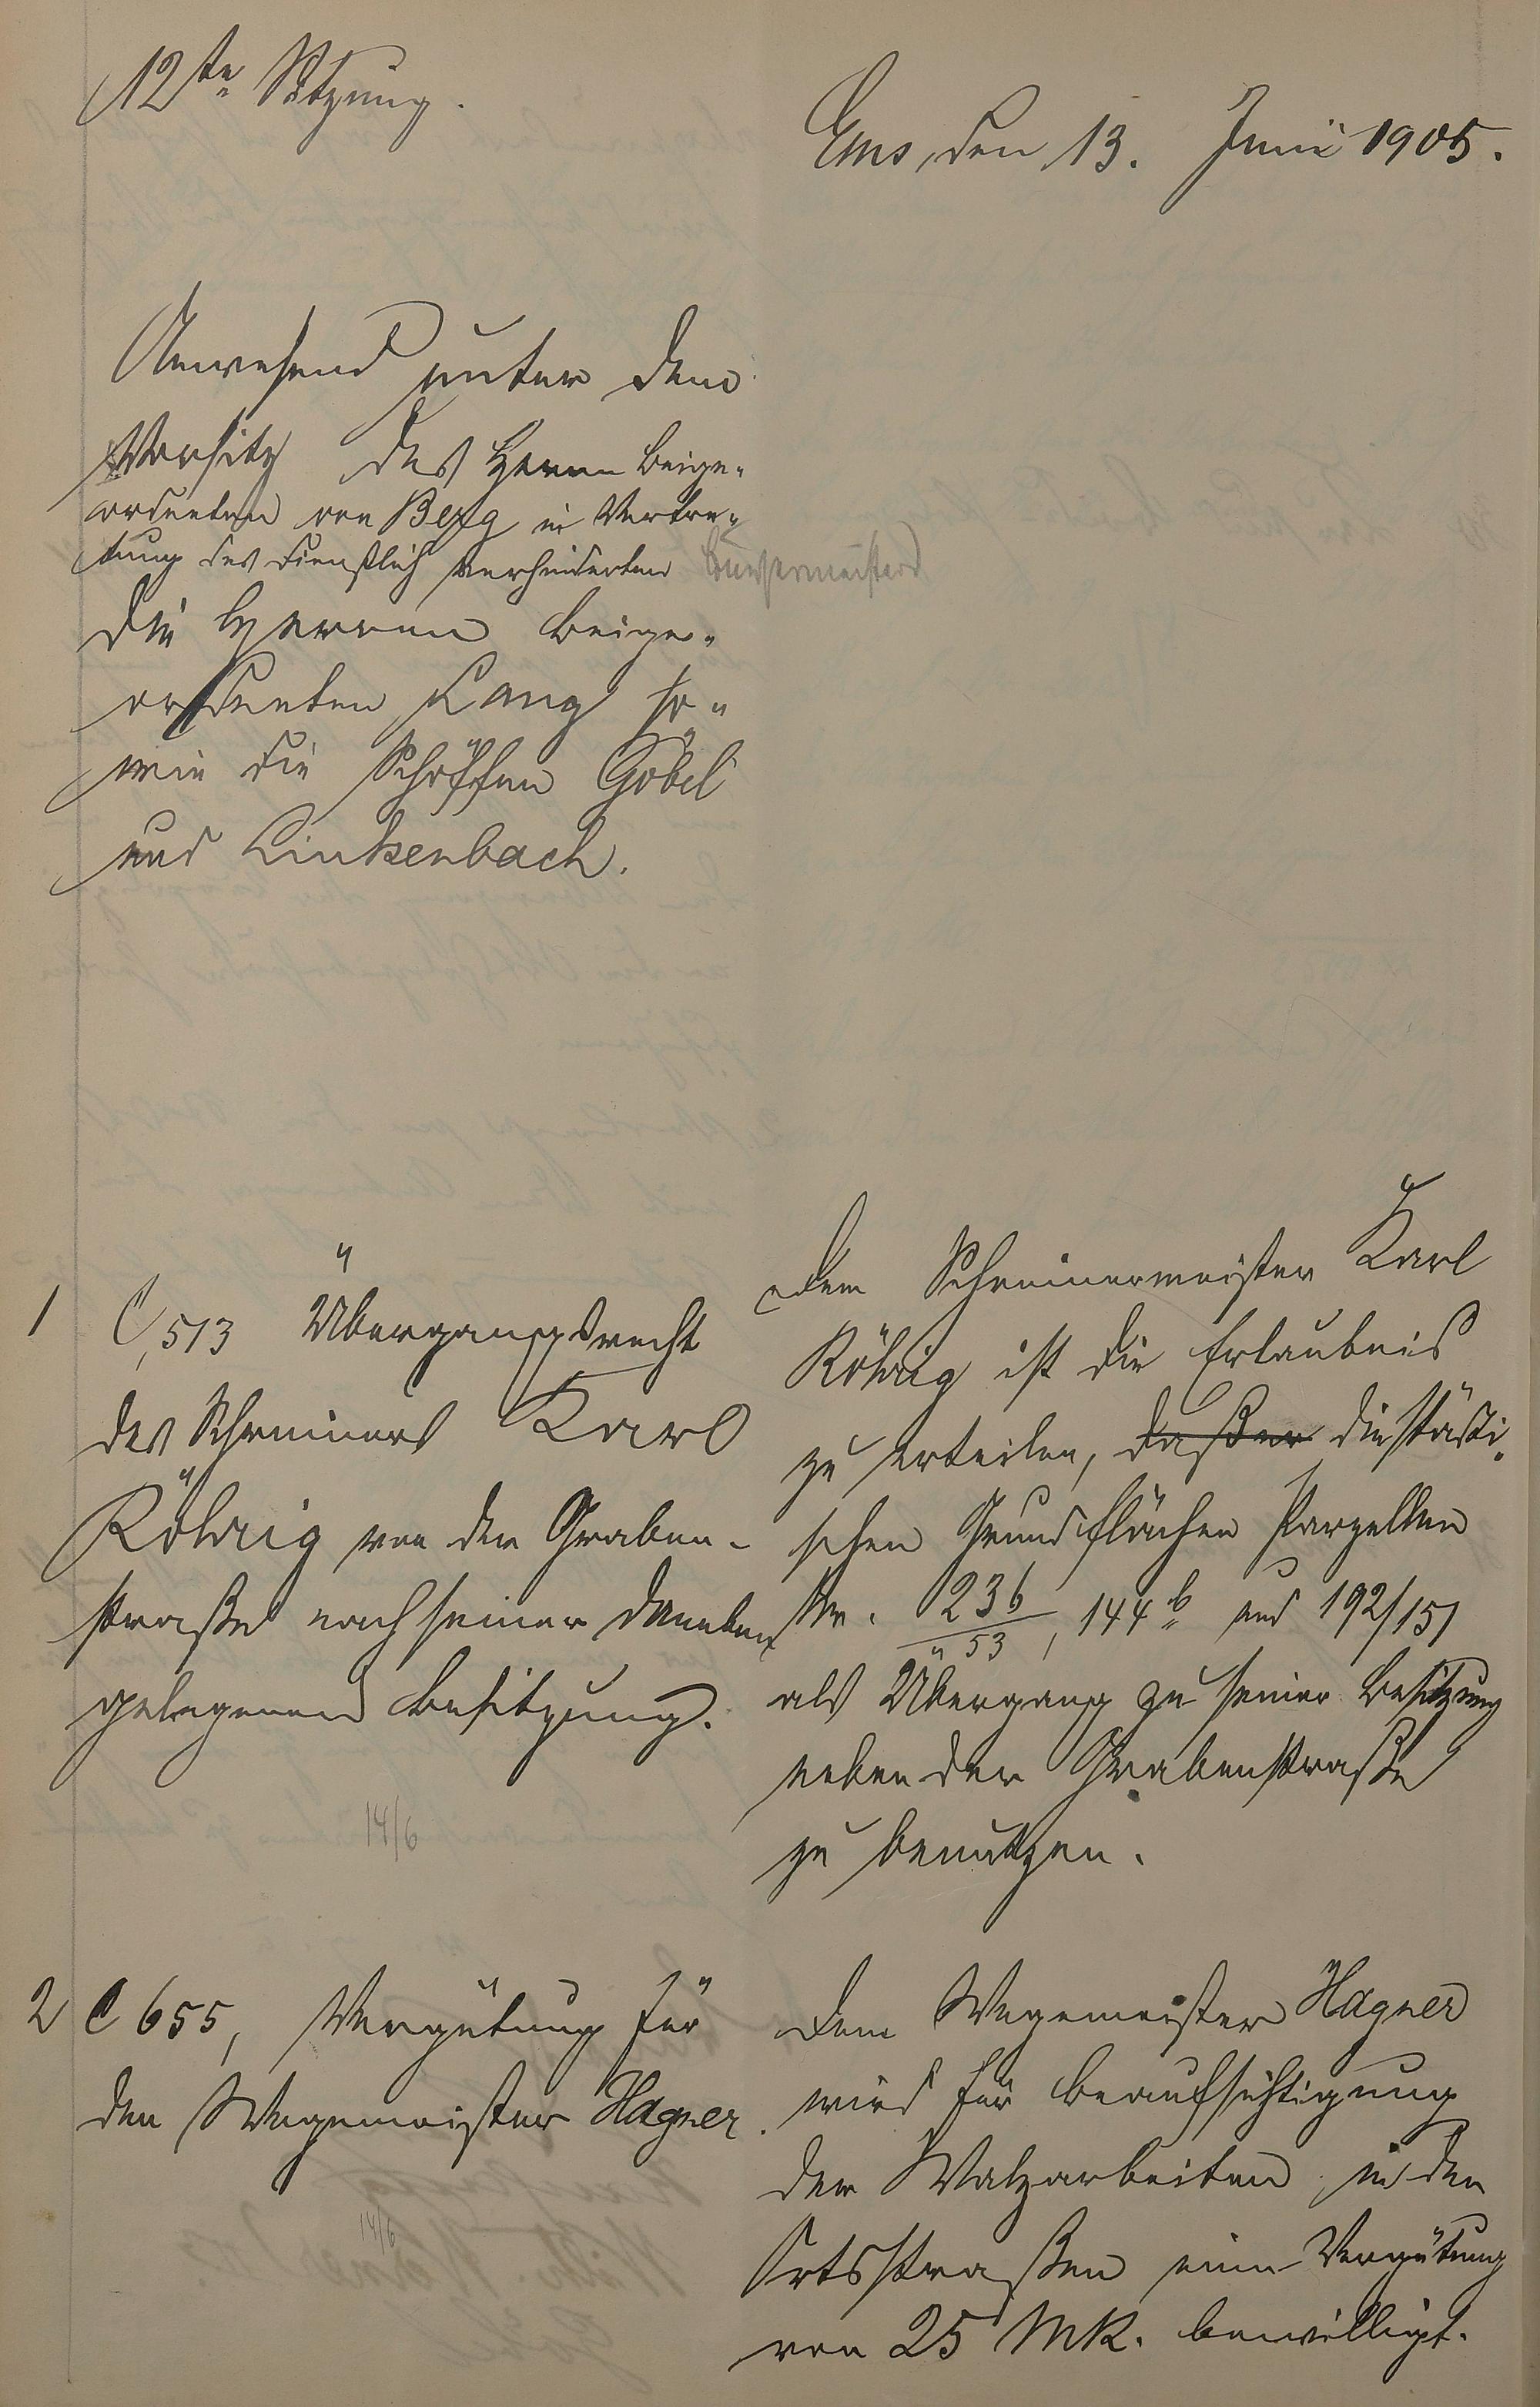 12te Sitzung.
Ems, den 13. Juni 1905.
Anwesend unter dem
Vorsitz des Herrn Beige-
ordneten von Berg in Vertre-
tung des dienstlich verhinderten Bürgermeisters
die Herren Beige-
ordneten Lang so-
wie die Schöffen Göbel
und Linkenbach.
1 C, 513 Übergangsrecht
des Schreiners Karl
Röhrig von der Graben-
straße nach seiner daneben
gelegenen Besitzung.
14/6
Dem Schreinermeister Karl
Röhrig ist die Erlaubnis
zu erteilen, daß er die städti-
schen Grundflächen Parzellen
Nr. 236/53, 144b und 192/151
als Übergang zu seiner Besitzung
neben der Grabenstraße
zu benutzen.
2 C 655, Vergütung für
den Wegemeister Hagner.
14/6
Dem Wegemeister Hagner
wird für Beaufsichtigung
der Walzarbeiten in den
Ortsstraßen eine Vergütung
von 25 Mk. bewilligt.